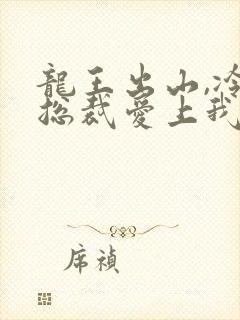 龍王出山,冷
總裁愛上我
席禎